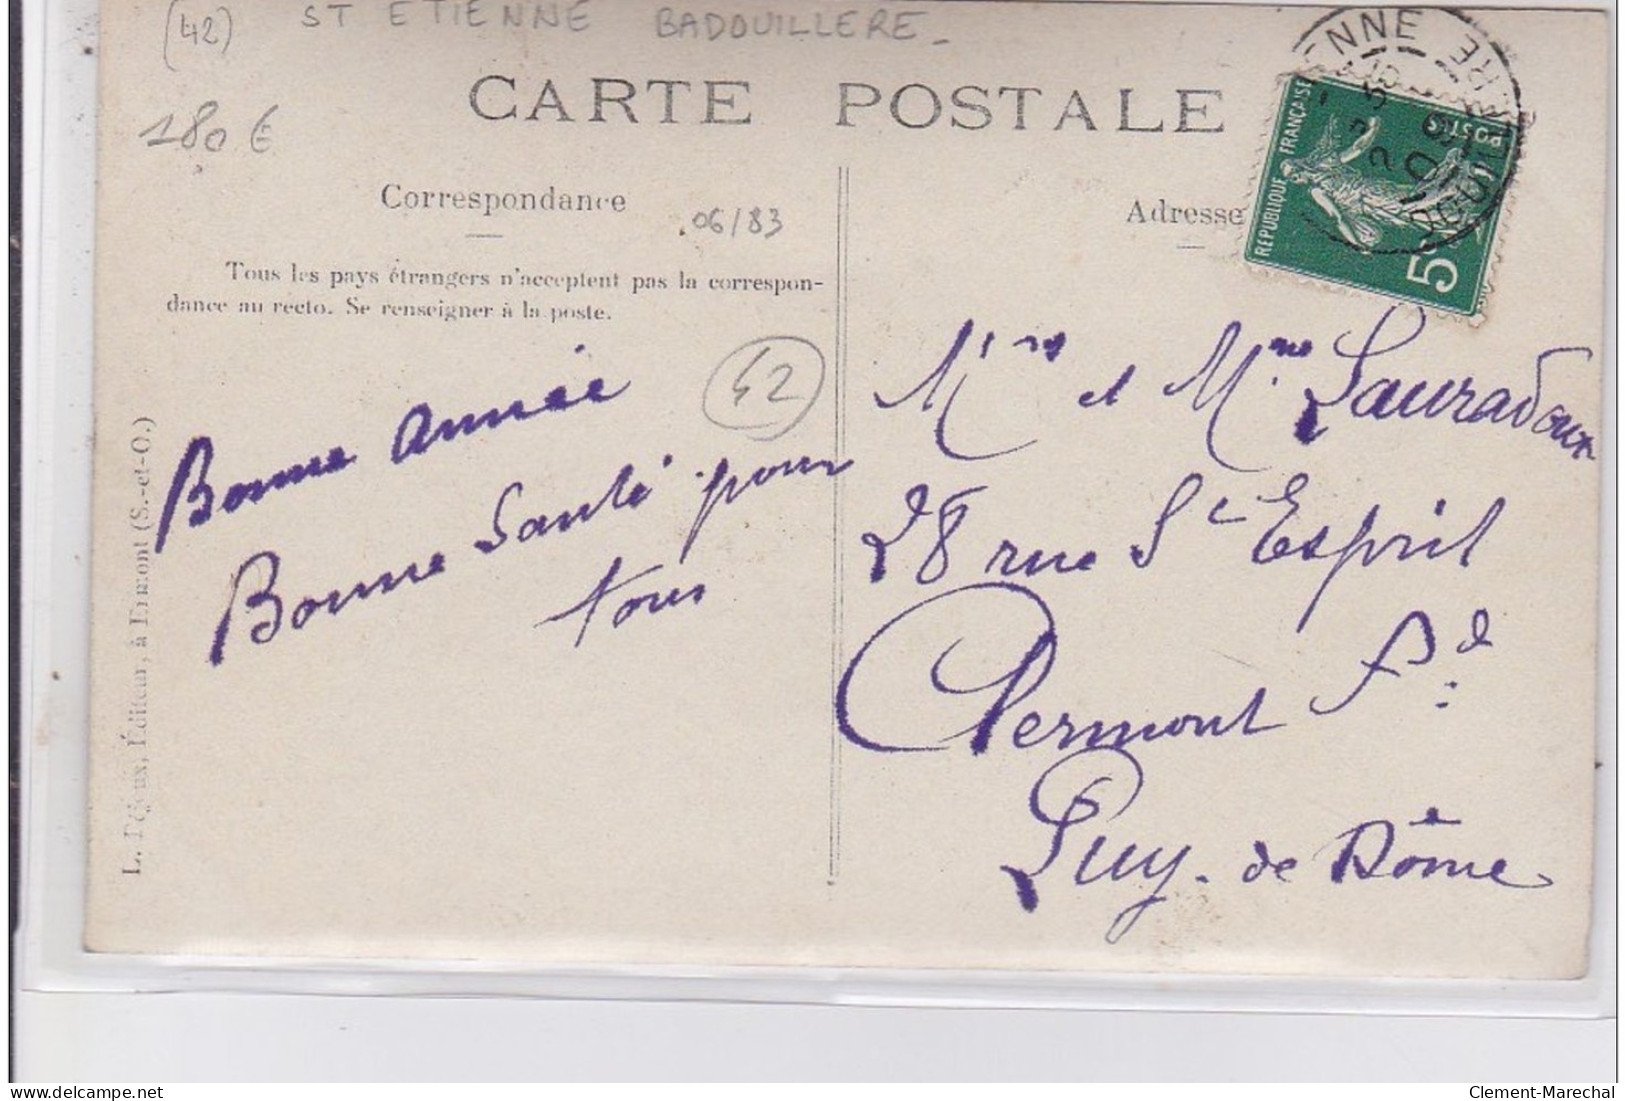 (42) ST ETIENNE BADOUILLERE -
180 €
CARTE POSTALE
Correspondance
06/83
Adresse
Tous les pays étrangers n'acceptent pas la correspon-
dance au recto. Se renseigner à la poste.
42
Bonne année
Bonne Santé pour
tous
RÉPUBLIQUE FRANÇAISE
POSTES
5
Mme Lauradoux
28 rue St Esprit
Clermont Fd
Puy-de Dôme
Éditeur, à (S.-et-O.)
delcampe.net
Clement-Marechal